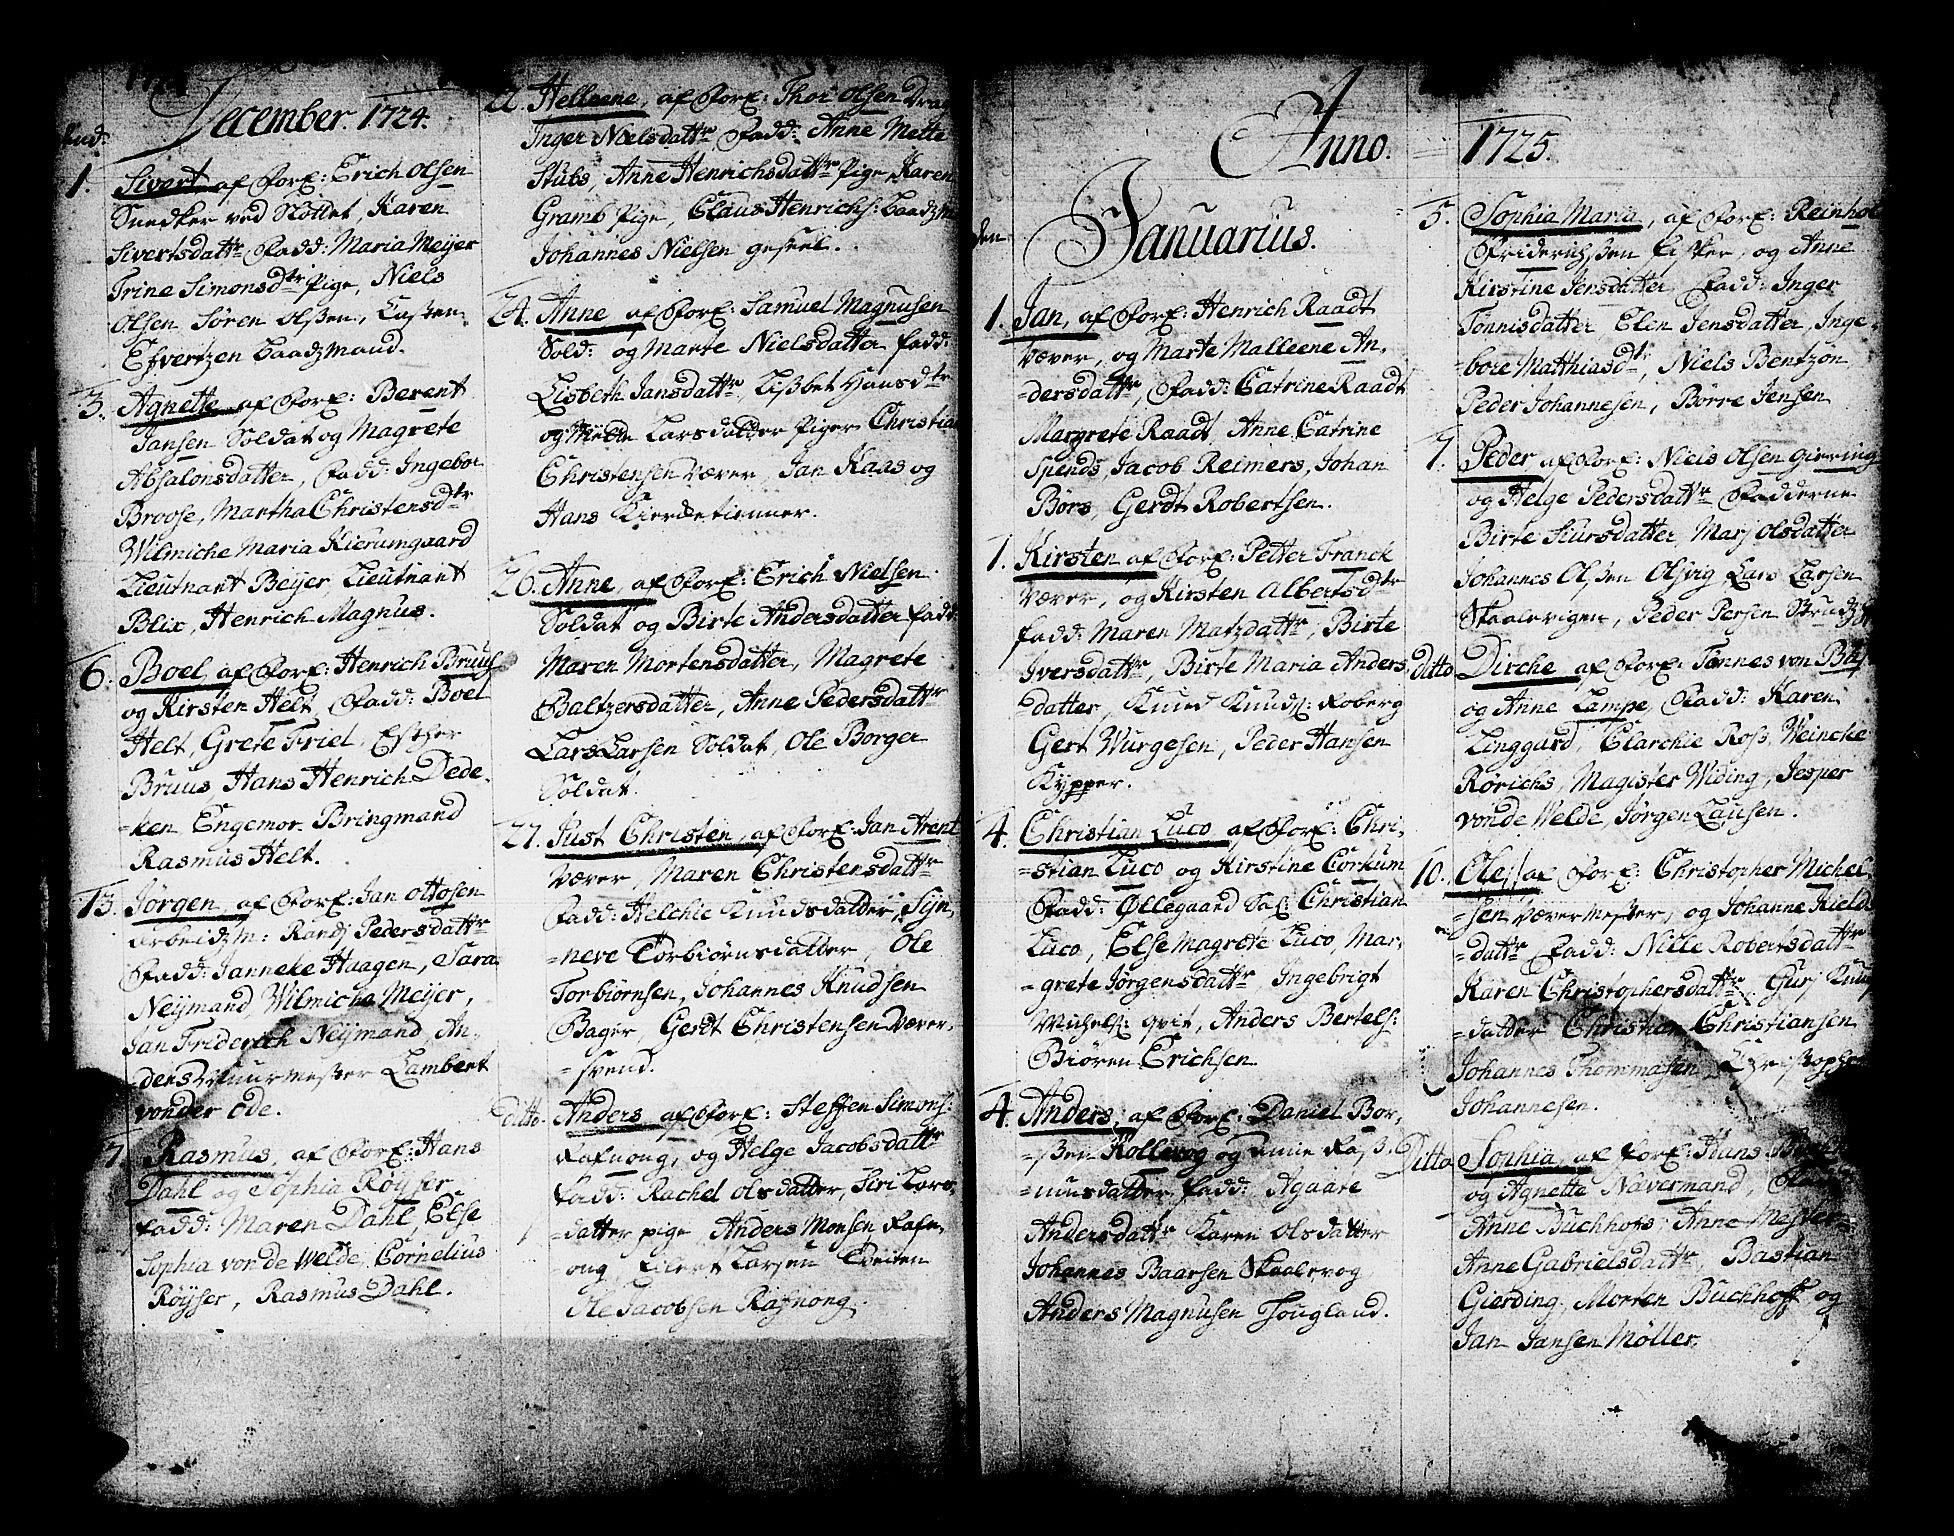 December. 1724.
1. Sivert af Forƒ: Erich Olsen
Snedker ved Slottet, Karen
Sivertsdattr Fadd: Maria Meijer
Trine Simonsdtr Pige, Niels
Olsen, Søren Olssen, Casten
Efvertzen Baadzmand.
3. Agnette af Forƒ: Berent
Jansen Soldat og Magrete
Absalonsdatter, Fadd: Ingebor
Broose, Martha Christensdtr
Wilmiche Maria Kierumgaard
Lieutnant Beijer, Lieutnant
Blix, Henrich Magnus.
6. Boel, af Forƒ: Henrich Bruus
og Kirsten Helt, Fadd: Boel
Helt, Grete Friel, Esther
Bruus Hans Henrich Dede-
-ken Engemor. Bringmand
Rasmus Helt.
13. Jørgen, af Forƒ: Jan Ottosen
Arbeidzm: Randj Pedersdattr
Fadd: Janneke Haagen, Sara
Neijmand, Wilmiche Meijer,
Jan Friderich Neijmand, An-
-ders Muurmester Lambert
vonder Ode.
7 Rasmus, af Forƒ: Hans
Dahl og Sophia Röyser
Fadd: Maren Dahl, Else
Sophia von de Welde, Cornelius
Röyser, Rasmus Dahl.
22. Helleene, af Forƒ: Thor Olsen
Inger Nielsdattr Fadd: Anne Mette
Stubs, Anne Henrichsdattr Pige, Karen
Gramb Pige, Claus Henrichs: Baadzm
Johannes Nielsen gesell.
24. Anne af Forƒ: Samuel Magnusen
Sold: og Marte Nielsdatter Fadd:
Lisbeth Jansdattr, Lissbet Hansdtr
og Larsdatter Piger Christian
Christensen Væver, Jan Kaas og
Hans Kierdetienner.
26. Anne, af Forƒ: Erich Nielsen
Soldat og Birte Andersdatter Fadd:
Maren Mortensdatter, Magrete
Baltzersdatter, Anne Pedersdattr
Lars Larsen Soldat, Ole Borger
Soldat.
27. Just Christen, af Forƒ: Jan Arent
Væver, Maren Christensdattr
Fadd: Helchie Knudsdatter, Sýn-
-neve Torbiørnsdatter, Ole
Torbiørnsen, Johannes Knudsen
Bager, Gerdt Christensen Væver-
-svend.
ditto. Anders af Forƒ: Steffen Simons:
Rafnong, og Helge Jacobsdattr
Fadd: Rachel Olsdatter, Siri Lars-
-datter pige Anders Monsen Rafn-
ong, Eilert Larsen
Ole Jacobsen Rafnong.
Anno. 1725.
Januarius.
den
1. Jan, af Forƒ: Henrich Raadt
Væver, og Marte Malleene An-
-dersdattr, Fadd: Catrine Raadt
Margrete Raadt, Anne Catrine
Spends, Jacob Reimers, Johan
Börs, Gerdt Robertsen.
1. Kirsten af Forƒ: Petter Franck
Væver, og Kirsten Albertsdtr
Fadd: Maren Matzdattr, Birte
Iversdattr, Birte Maria Anders-
-datter, Knud Knuds: Foberg
Gert Wurgesen, Peder Hansen
Kypper.
4. Christian Luco af Forƒ: Chri-
-stian Luco og Kirstine Corkum
Fadd: Øllegaard Sal: Christian
Luco, Else Magrete Luco, Mar-
-grete Jørgensdattr, Ingebrigt
Michels: Qvit, Anders Bertels:
Biören Erichsen
4. Anders, af Forƒ: Daniel Bor-
-ssen Rollevog og Anne Ras-
-musdatter, Fadd: Agaate
Andersdattr Karen Olsdatter
Johannes Baarsen Skaalevog
Anders Magnusen Hougland.
5. Sophia Maria, af Forƒ: Reinhol
Friderichssen Fisker, og Anne
Kirstine Jensdatter Fadd: Inger
Tönnisdatter, Elen Jensdatter, Inge-
-bore Matthiasdtr, Niels Bentzon
Peder Johannesen, Børre Jensen
7. Peder, af Forƒ: Niels Olsen Gierring
og Helge Pedersdattr Fadderne
Birte Siursdatter, Marj Olsdatter
Johannes Olssen Olsvig Lars Larsen
Skaalevigen, Peder Persen
ditto Dirche af Forƒ: Tønnes von
og Anne Lampe, Fadd: Karen
Linggard, Clarchie Ross, Weincke
Rørichs, Magister Widing, Jesper
vonde Welde, Jørgen Lausen.
10. Ole, af Forƒ: Christopher Michel
-sen Vævermester, og Johanne Kield
-dattr Fadd: Nille Robertsdattr
Karen Christophersdattr, Gurj Knus
-datter Christian Christiansen
Johannes Thommasen, Christopher
Johannesen.
Ditto Sophia, af Forƒ: Hans
og Agnette Nævermand, Fadd
Anne Buchhofs, Anne Mester-
Anne Gabrielsdattr, Bastian
Gierding, Morten Buchhoff og
Jan Jansen Möller.